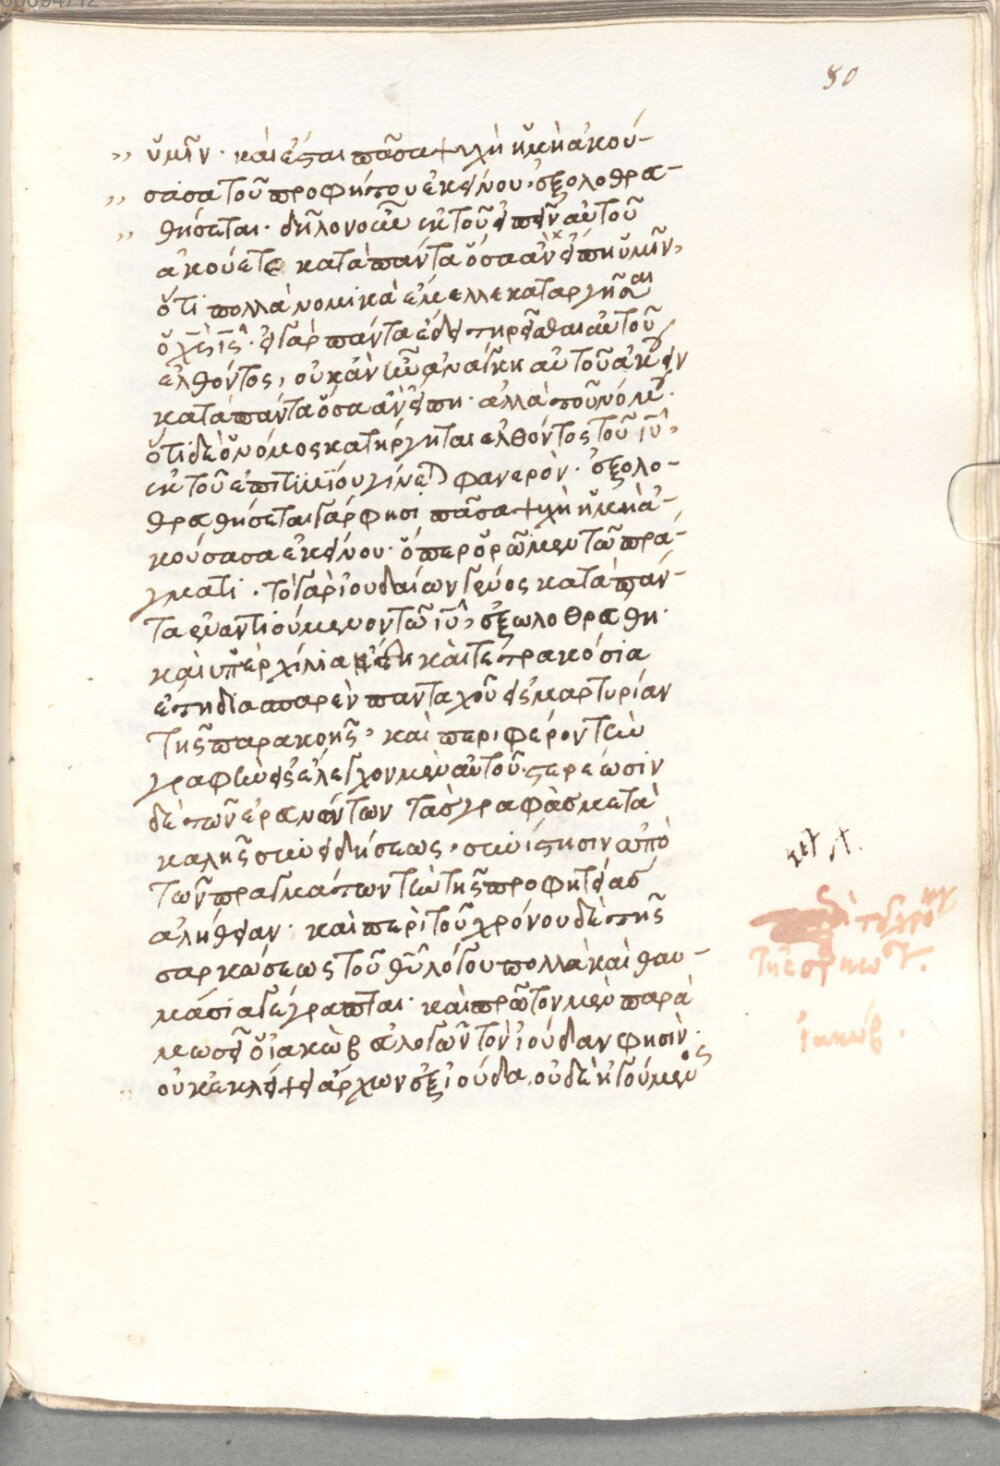 80
,, ὑμῖν · καὶ ἔσται πᾶσα ψυχὴ ἢ μὴ ἀκού-
,, σασα τοῦ προφήτου ἐκείνου · ἐξολοθρε-
,, θήσεται · δῆλον οὖν ἐκ τοῦ εἰπεῖν αὐτοῦ
ἀκούετε κατὰ πάντα ὅσα ἂν εἴπῃ ὑμῖν,
ὅτι πολλὰ νομικὰ ἔμελλε καταργῆσαι
ὁ χς ις · εἰ γὰρ πάντα ἔδει τηρεῖσθαι αὐτοῦ
ἐλθόντος, οὐκ ἂν ἦν ἀνάγκη αὐτοῦ ἀκούειν
κατὰ πάντα ὅσα ἂν εἴπῃ · ἀλλὰ τοῦ νόμου ·
ὅτι δὲ ὁ νόμος κατήργηται ἐλθόντος τοῦ ιυ,
ἐκ τοῦ ἐπιτιμίου γίνεται φανερὸν · ἐξολο-
θρεθήσεται γάρ φησι πᾶσα ψυχὴ ἢ μὴ ἀ-
κούσασα ἐκείνου · ὅπερ ὁρῶμεν τῶ πρά-
γματι · τὸ γὰρ ἰουδαίων γένος κατὰ πάν-
τα ἐναντιούμενον τῶ ιυ, ἐξωλοθρεθη ·
καὶ ὑπὲρ χίλια καὶ τετρακόσια
ἔτη διασπαρὲν πανταχοῦ εἰς μαρτυρίαν
τῆς παρακοῆς, καὶ περιφέρον τὴν
γραφὴν εἰς ἔλεγχον μὲν αὐτοῦ · στερέωσιν
δὲ τῶν ἐρανώντων τὰς γραφὰς μετὰ
καλῆς συνειδήσεως · συνίστησιν ἀπὸ
τῶν πραγμάτων τὴν τῆς προφητείας
ἀλήθειαν · καὶ περὶ τοῦ χρόνου δὲ τῆς
σαρκώσεως τοῦ θυ λόγου πολλὰ καὶ θαυ-
μάσια γέγραπται · καὶ πρῶτον μὲν παρὰ
μωσεῖ ὁ ἰακὼβ εὐλογῶν τὸν ἰούδαν φησὶν ·
,, οὐκ ἐκλείψει ἄρχων ἐξ ἰούδα, οὐδὲ ἡγούμενος
ἰακώβ .